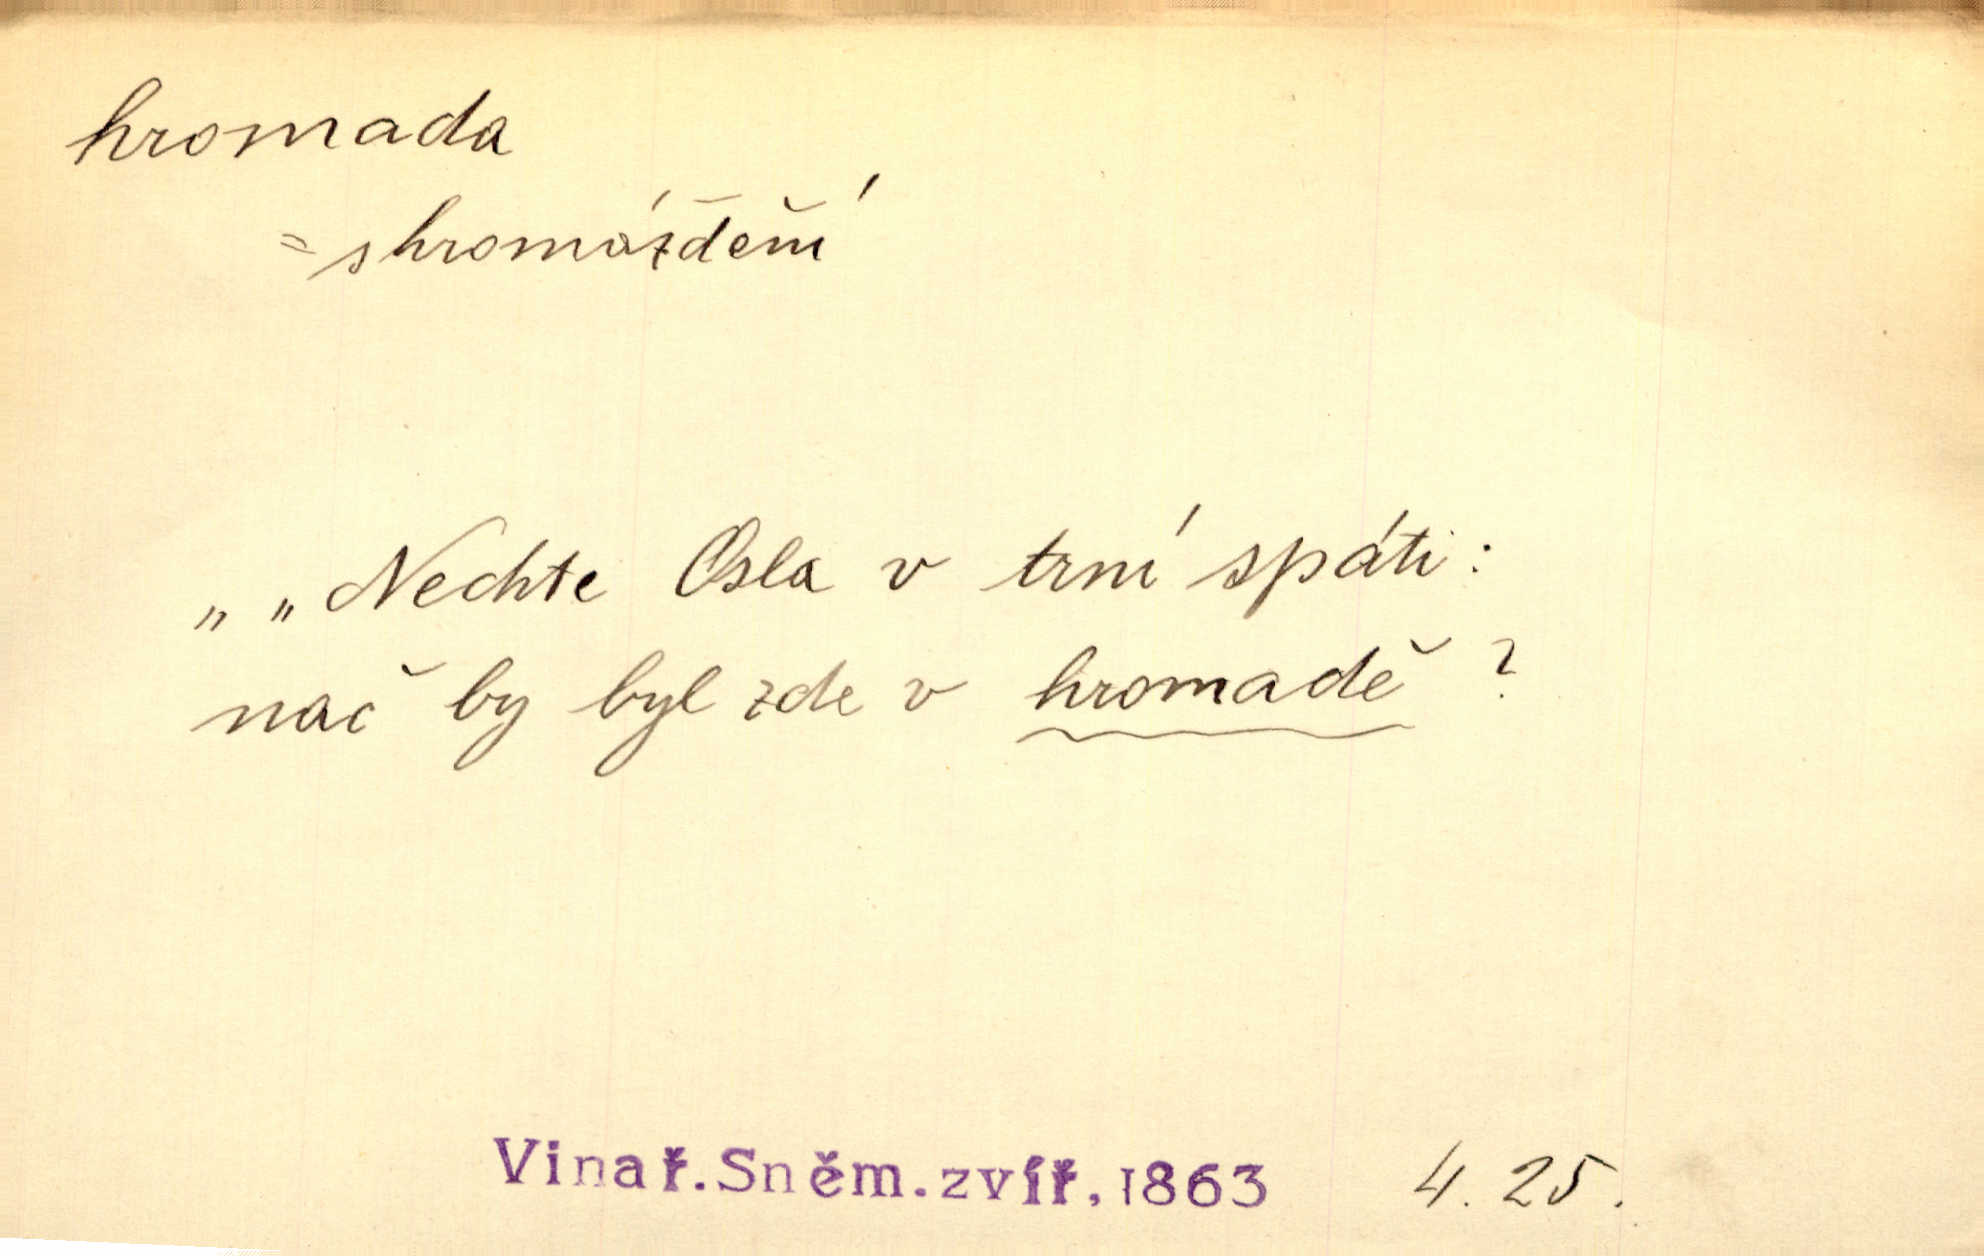 hromada
= shromáždění
„ „ Nechte Osla v trní spáti:
nač by byl zde v hromadě?
Vinař. Sněm. zvíř. 1863 4. 25.